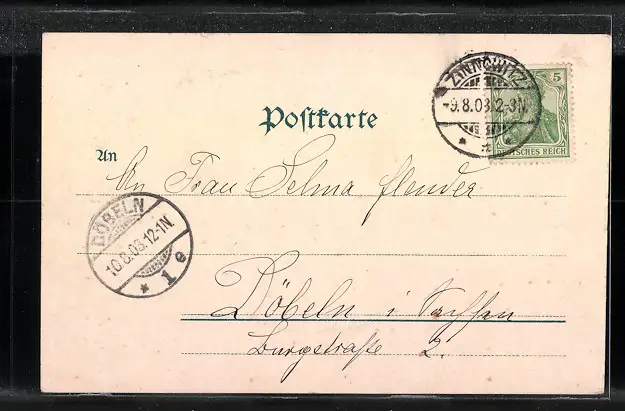 ZINNOWITZ
-9.8.03.2-3N
5
DEUTSCHES REICH
Postkarte
An
An Frau Selma
DÖBELN
10.8.03.12-1N.
* 1 e
Döbeln i. Sachsen
Burgstraße 2.